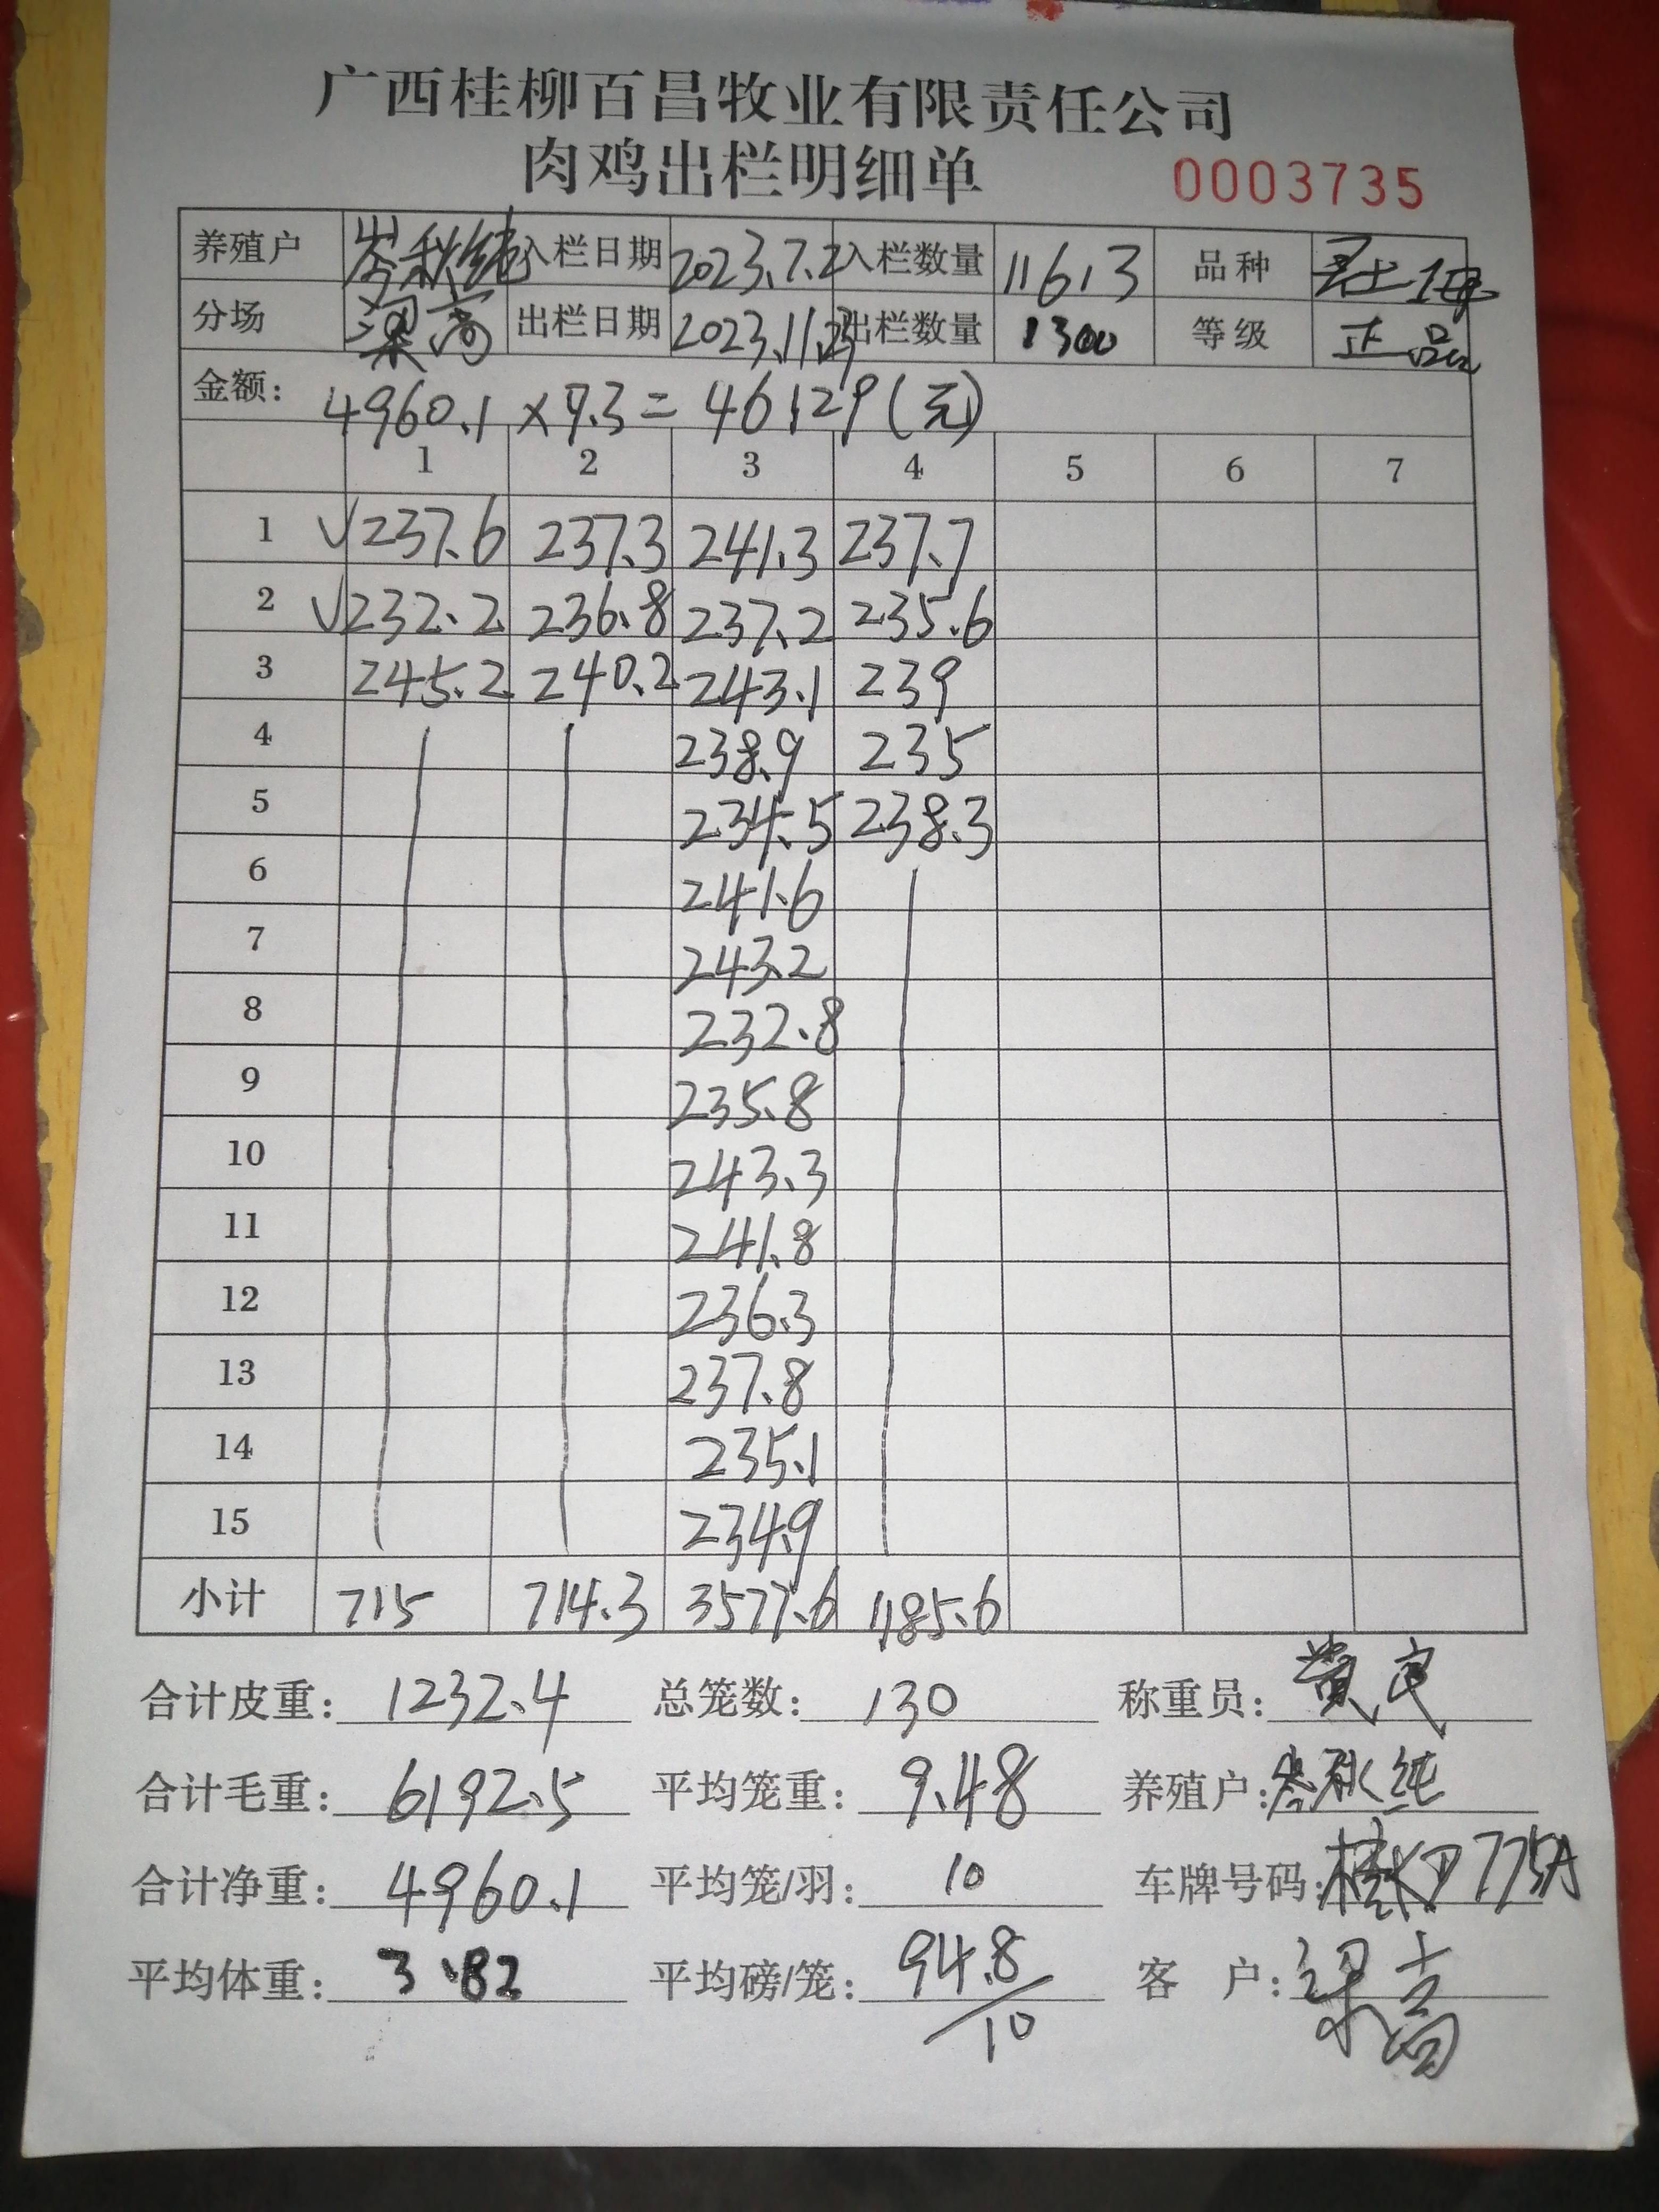 广西桂柳百昌牧业有限责任公司
肉鸡出栏明细单 0003735
养殖户 岑秋纯 入栏日期 2023.7.2 入栏数量 11613 品种
分场 梁高 出栏日期 2023.11.23 出栏数量 1300 等级 正品
金额: 4960.1 × 9.3 = 46129(元)
1 2 3 4 5 6 7
1 √237.6 237.3 241.3 237.7
2 √232.2 236.8 237.2 235.6
3 245.2 240.2 243.1 239
4 238.9 235
5 234.5 238.3
6 241.6
7 243.2
8 232.8
9 235.8
10 243.3
11 241.8
12 236.3
13 237.8
14 235.1
15 234.9
小计 715 714.3 3577.6 1185.6
合计皮重: 1232.4 总笼数: 130 称重员:
合计毛重: 6192.5 平均笼重: 9.48 养殖户: 岑秋纯
合计净重: 4960.1 平均笼/羽: 10 车牌号码: 775A
平均体重: 3.82 平均磅/笼: 94.8/10 客 户: 梁高